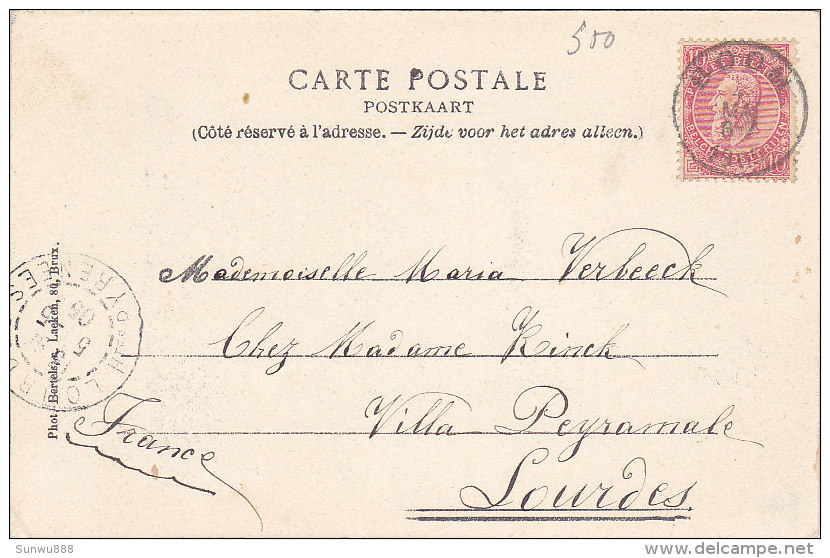 500
CARTE POSTALE
POSTKAART
(Côté réservé à l'adresse. — Zijde voor het adres alleen.)
Mademoiselle Maria Verbeeck
Chez Madame Kinck
Villa Peyramale
Lourdes
France
Phot. Bertels, Laeken, 80, Brux.
LOURDES
Sunwu888
delcampe.net